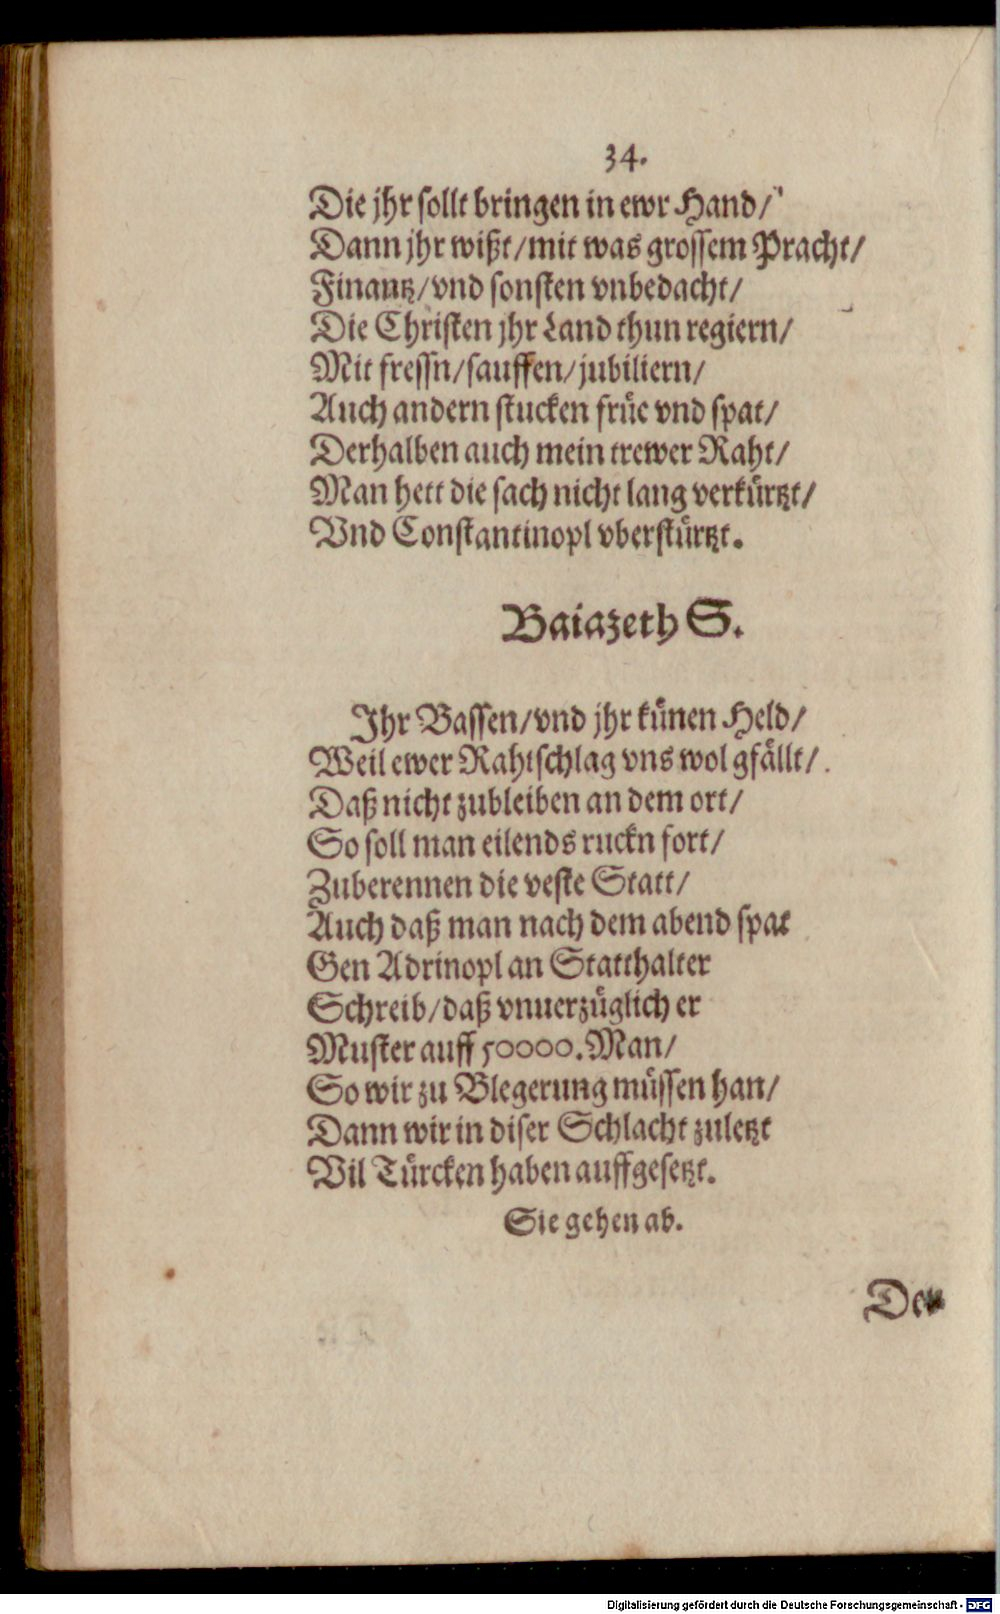 34.
Die jhr sollt bringen in ewr Hand/
Dann jhr wißt/mit was grossem Pracht/
Finantz/vnd sonsten vnbedacht/
Die Christen jhr Land thun regiern/
Mit fressn/sauffen/jubiliern/
Auch andern stucken früe vnd spat/
Derhalben auch mein trewer Raht/
Man hett die sach nicht lang verkürtzt/
Vnd Constantinopl vberstürtzt.
Baiazeth S.
Ihr Bassen/vnd jhr künen Held/
Weil ewer Rahtschlag vns wol gfällt/.
Daß nicht zubleiben an dem ort/
So soll man eilends ruckn fort/
Zuberennen die veste Statt/
Auch daß man nach dem abend spat
Gen Adrinopl an Statthalter
Schreib/daß vnuerzüglich er
Muster auff 50000. Man/
So wir zu Blegerung müssen han/
Dann wir in diser Schlacht zuletzt
Vil Türcken haben auffgesetzt.
Sie gehen ab.
Der
Digitalisierung gefördert durch die Deutsche Forschungsgemeinschaft - DFG